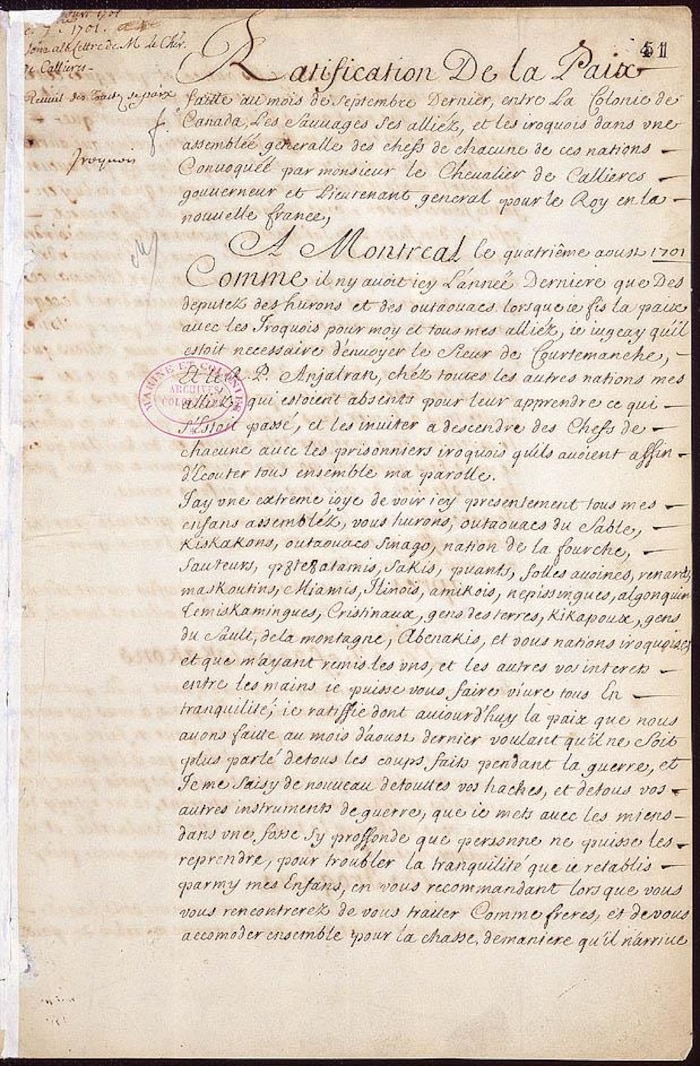 1701.
joint à la Lettre de M. le Chev.
de Callieres
Recueil des Traitez de paix
Iroquois
51
Ratification De la Paix
faitte au mois de septembre Dernier, entre La Colonie de
Canada, Les Sauvages ses alliéz, et les iroquois dans vne
assemblée generalle des chefs de chacune de ces nations
Convoquée par monsieur le Chevalier de Callieres
gouuerneur et Lieutenant general pour le Roy en la
nouuelle france,
A Montreal le quatrième aoust 1701
Comme il ny auoit icy L'année Derniere que Des
deputez des hurons et des outaouacs lorsque ie fis la paix
auec les Iroquois pour moy et tous mes alliéz, ie iugeay qu'il
estoit necessaire d'enuoyer le Sieur de Courtemanche,
Et le R. P. Anjalran, chéz toutes les autres nations mes
alliéz, qui estoient absents pour leur apprendre ce qui
s'Estoit passé, et les inuiter a descendre des Chefs de
chacune auec les prisonniers iroquois qu'ils auoient affin
d'Ecouter tous ensemble ma parolle.
MARINE ET COLONIES
ARCHIVES
COLONIALES
J'ay vne extreme ioye de voir icy presentement tous mes
enfans assembléz, vous hurons, outaouacs du Sable,
Kiskakons, outaouacs Sinago, nation de la fourche,
sauteurs, p8te8atamis, sakis, puants, folles auoines, renards,
maskoutins, Miamis, Ilinois, amikois, nepissingues, algonquins
Temiskamingues, Cristinaux, gens des terres, Kikapoux, gens
du Sault, de la montagne, Abenakis, et vous nations iroquoises
et que m'ayant remis les vns, et les autres vos interets
entre les mains ie puisse vous faire viure tous En
tranquilité; ie ratiffie dont auiourd'huy la paix que nous
auons faitte au mois d'aoust dernier voulant qu'il ne soit
plus parlé de tous les coups faits pendant la guerre, et
Ie me saisy de nouueau de touttes vos haches, et de tous vos
autres instruments de guerre, que ie mets auec les miens
dans vne fosse sy proffonde que personne ne puisse les
reprendre, pour troubler la tranquilité que ie retablis
parmy mes Enfans, en vous recommandant lorsque vous
vous rencontrerez de vous traiter Comme freres, et de vous
accomoder ensemble pour la chasse, de maniere qu'il n'arriue